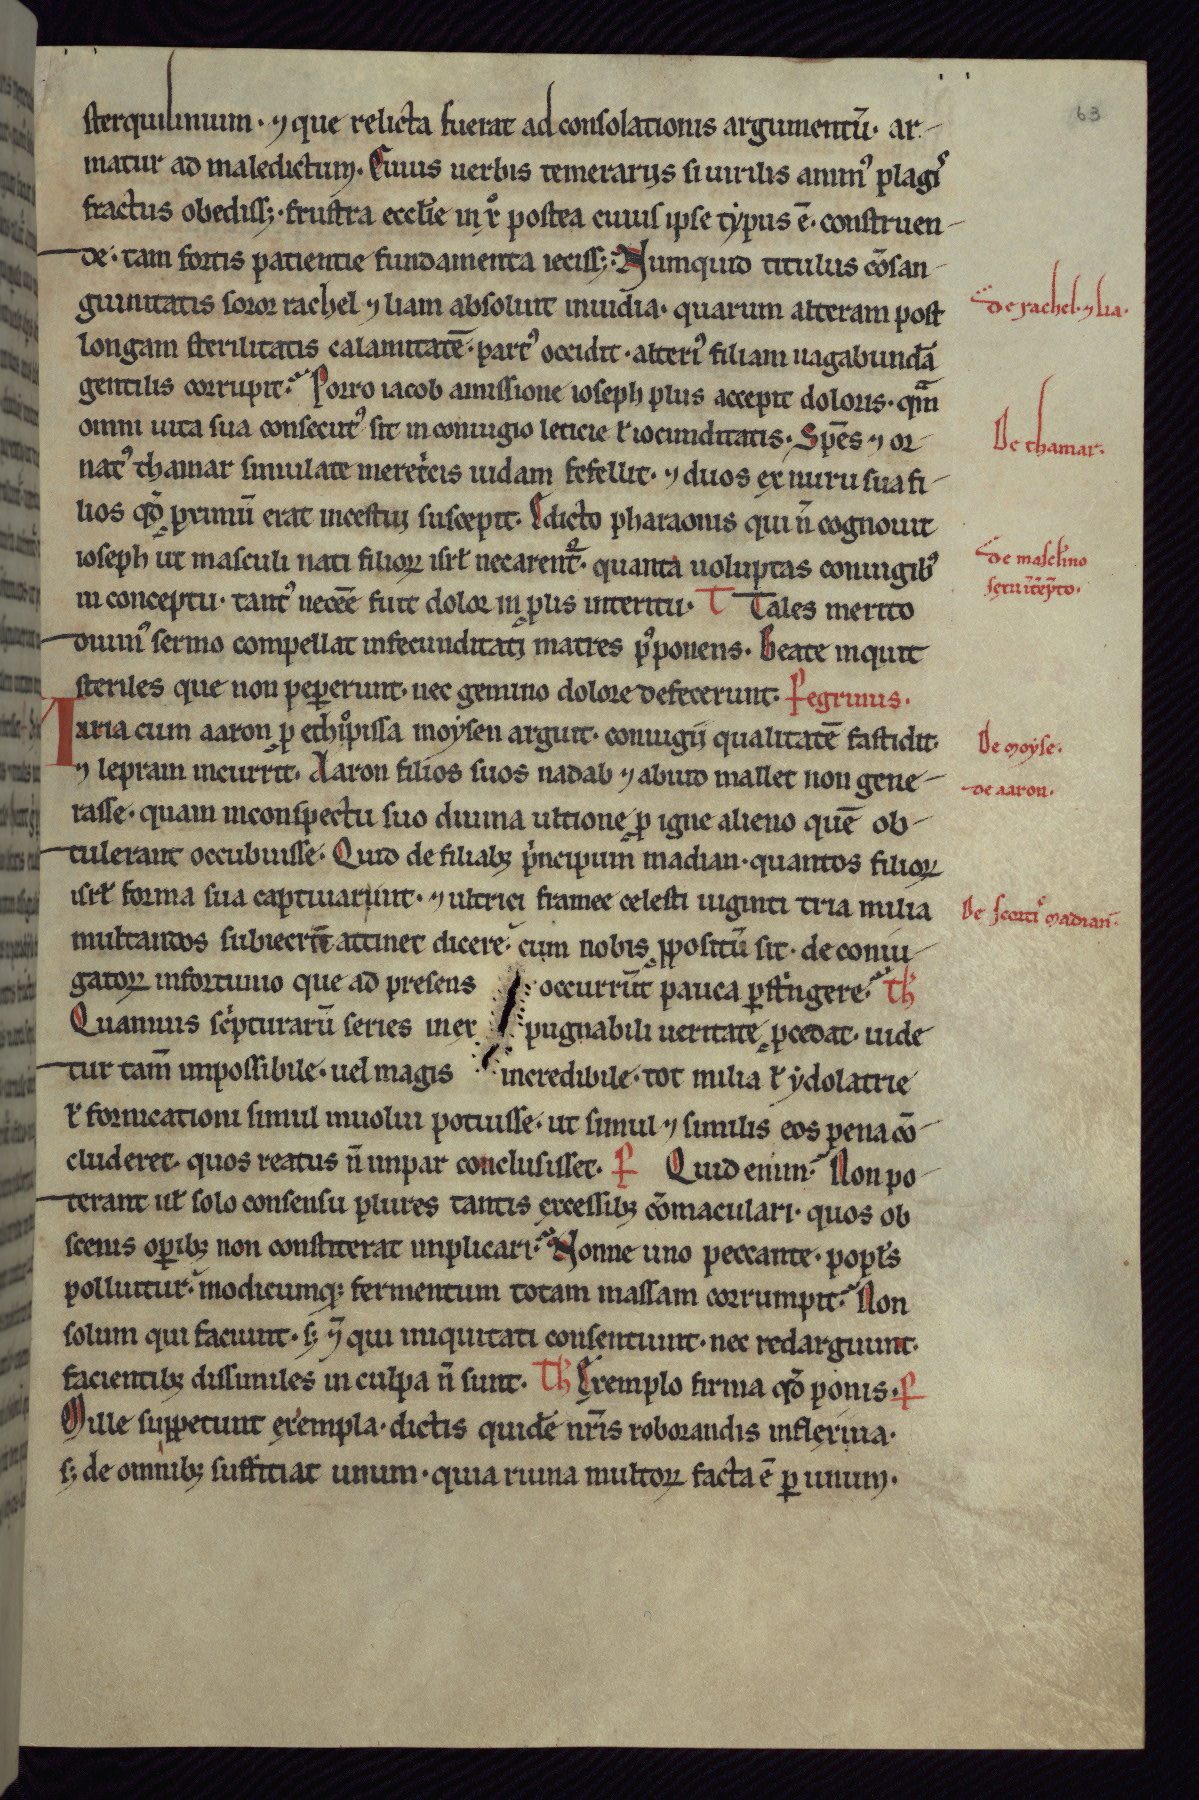 63
sterquilinium· ⁊ que relicta fuerat ad consolationis argumentū· ar-
matur ad maledictum. Cuius uerbis temerariis si uirilis animꝰ plagis
fractus obediss;· frustra eccl̄ie in xº postea cuius ipse typus ē· construen-
de· tam fortis patientie fundamenta ieciss; Numquid titulus cōsan-
guinitatis soror rachel ⁊ liam absoluit inuidia· quarum alteram post
de rachel· ⁊ lia·
longam sterilitatis calamitatē· partꝰ occidit· alteriꝰ filiam uagabundā
gentilis corrupit. Porro iacob amissione ioseph plus accepit doloris· qm̄
omni uita sua consecutꝰ sit in coniugio leticie ł iocunditatis. Spēs ⁊ or-
De thamar·
natꝰ thamar simulate meretcis iudam fefellit· ⁊ duos ex nuru sua fi-
lios qd̄ ꝓximū erat incestui suscepit. Edicto pharaonis qui n̄ cognouit
ioseph ut masculi nati filioꝝ isrł necarent̄· quanta uoluptas coniugibꝰ
de masclino
in conceptu· tantꝰ necēe fuit dolor in ꝓlis interitu. T Tales merito
diuinꝰ sermo compellat infecunditati matres pꝰponens. Beate inquit
steriles que non peꝑerunt· nec gemino dolore defecerunt. Pegrinus.
Maria cum aaron ꝓ ethiopissa moysen arguit· coniugii qualitatē fastidit·
De moyse·
⁊ lepram incurrit. Aaron filios suos nadab ⁊ abiud mallet non gene-
de aaron·
rasse· quam inconspectu suo diuina ultione ꝓ igne alieno quē ob-
tulerant occubuisse. Quid de filiabꝫ pncipum madian· quantos filioꝝ
isrł forma sua captiuarunt· ⁊ ultrici framee celesti uiginti tria milia
De scortꝭ madian·
multandos subiecrūt attinet dicere· cum nobis ꝓpositū sit· de coniu-
gatoꝝ infortunio que ad presens occurrūt pauca ꝑstingere. Th
Quamuis scripturarū series inex pugnabili ueritate ꝓcedat· uide
tur tam̄ impossibile· uel magis incredibile· tot milia ł ydolatrie
ł fornicationi simul inuolui potuisse· ut simul ⁊ similis eos pena cō-
cluderet· quos reatus n̄ impar conclusisset. P Quid enim. Non po-
terant uł solo consensu plures tantis excessibꝫ cōmaculari· quos ob
scenis oꝑibꝫ non constiterat implicari. Nonne uno peccante· popłs
polluitur· modicumqꝫ fermentum totam massam corrumpit. Non
solum qui faciunt· s; ⁊ qui iniquitati consentiunt· nec redarguunt·
facientibꝫ dissimiles in culpa n̄ sunt. Th Exemplo firma qd̄ ponis. P
Mille suppetunt exempla· dictis quidē nr̄is roborandis inflexiua·
s; de omnibꝫ sufficiat unum· quia ruina multoꝝ facta ē ꝑ unum.